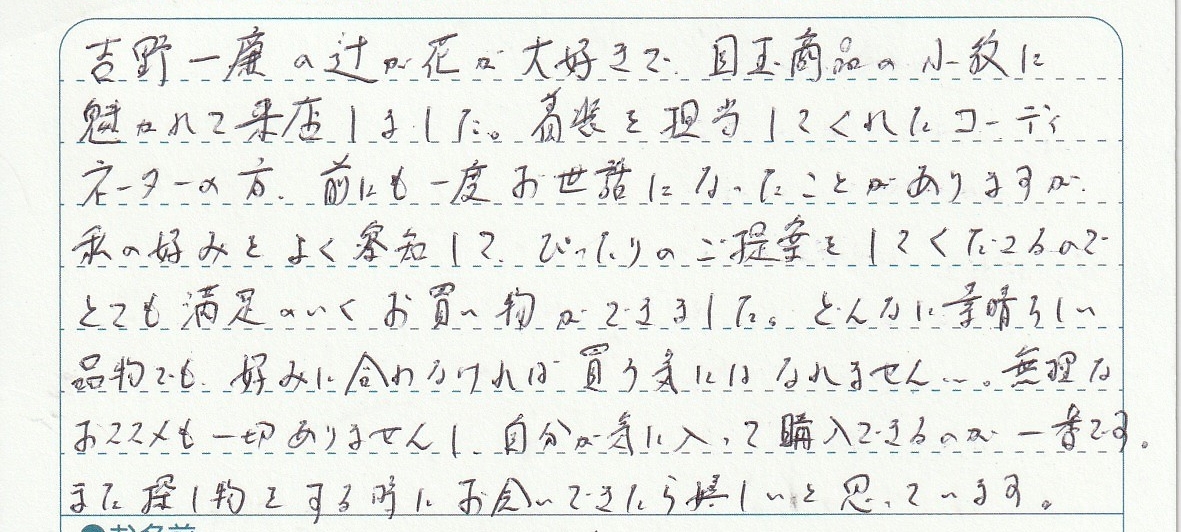 吉野一廉の辻が花が大好きで、目玉商品の小紋に
魅かれて来店しました。着装を担当してくれたコーディ
ネーターの方、前にも一度お世話になったことがありますが、
私の好みをよく察知して、ぴったりのご提案をしてくださるので
とても満足のいくお買い物ができました。どんなに素晴らしい
品物でも、好みに合わなければ買う気にはなれません…。無理な
おススメも一切ありませんし、自分が気に入って購入できるのが一番です。
また探し物をする時にお会いできたら嬉しいと思っています。